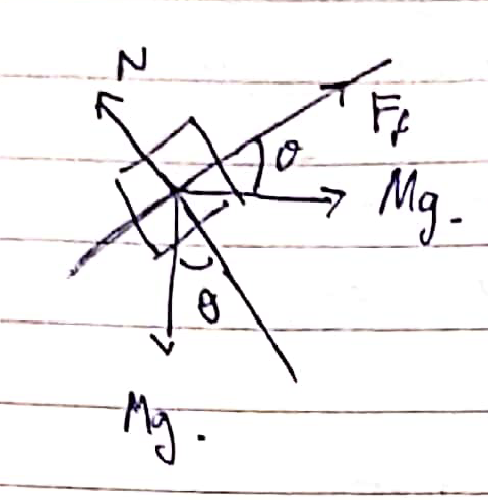 N
F_f
θ
Mg.
θ
Mg.